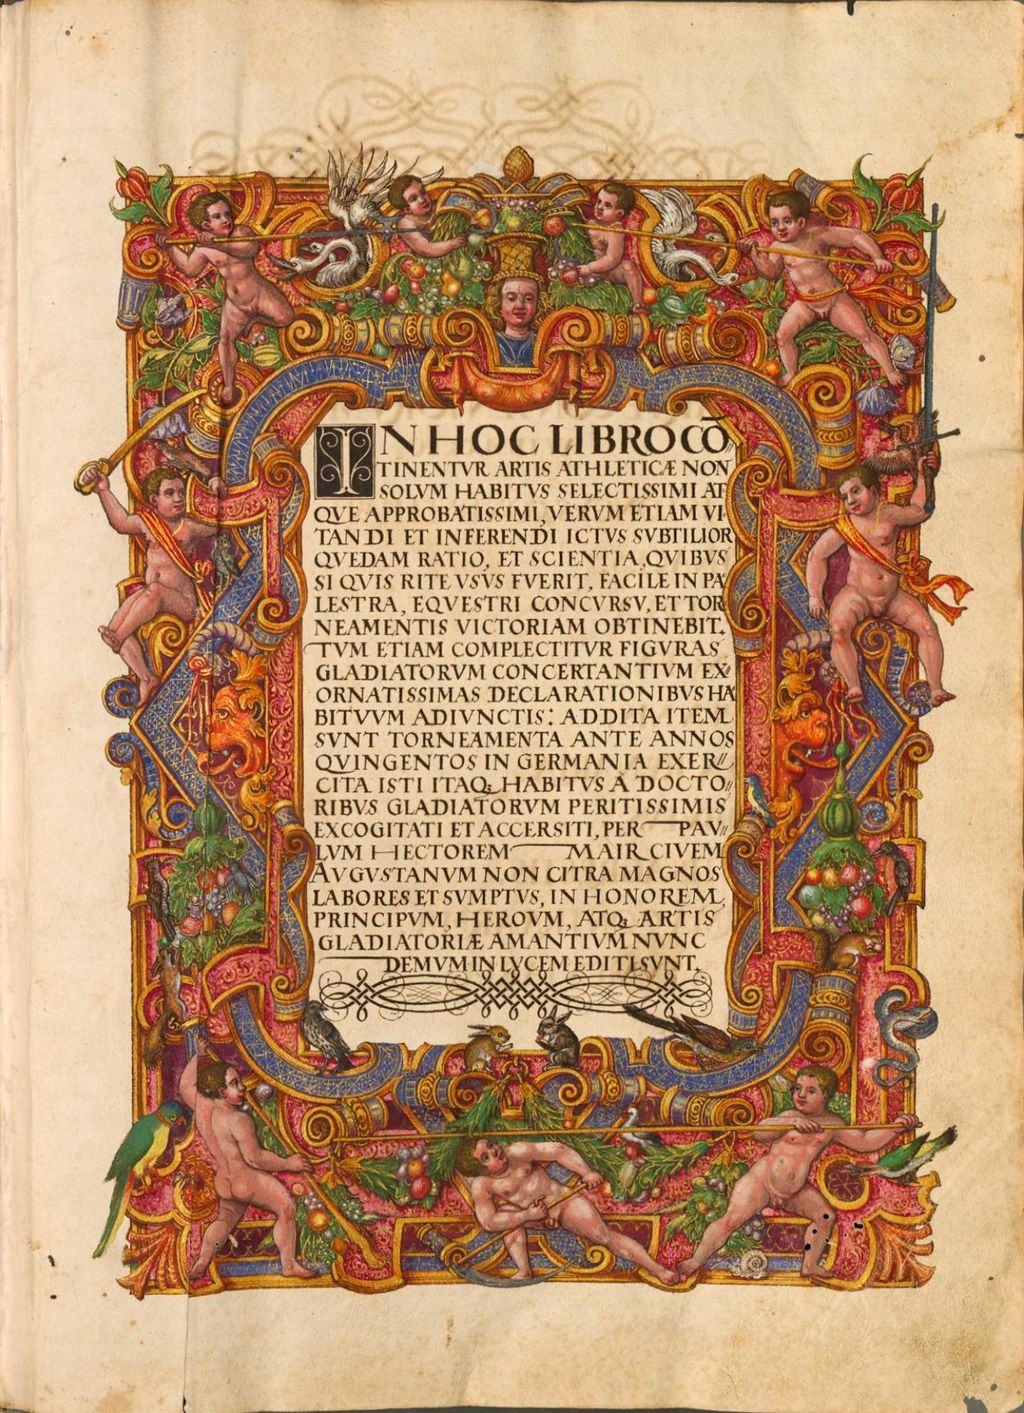 IN HOC LIBRO CŌ
TINENTVR ARTIS ATHLETICÆ NON
SOLVM HABITVS SELECTISSIMI AT
QVE APPROBATISSIMI, VERVM ETIAM VI
TANDI ET INFERENDI ICTVS SVBTILIOR
QVEDAM RATIO, ET SCIENTIA, QVIBVS
SI QVIS RITE VSVS FVERIT, FACILE IN PA
LESTRA, EQVESTRI CONCVRSV, ET TOR
NEAMENTIS VICTORIAM OBTINEBIT.
TVM ETIAM COMPLECTITVR FIGVRAS
GLADIATORVM CONCERTANTIVM EX
ORNATISSIMAS DECLARATIONIBVS HA
BITVVM ADIVNCTIS: ADDITA ITEM
SVNT TORNEAMENTA ANTE ANNOS
QVINGENTOS IN GERMANIA EXER//
CITA ISTI ITAQ; HABITVS A DOCTO//
RIBVS GLADIATORVM PERITISSIMIS
EXCOGITATI ET ACCERSITI, PER PAV//
LVM HECTOREM MAIR CIVEM
AVGVSTANVM NON CITRA MAGNOS
LABORES ET SVMPTVS, IN HONOREM,
PRINCIPVM, HEROVM, ATQ; ARTIS
GLADIATORIÆ AMANTIVM NVNC
DEMVM IN LVCEM EDITI SVNT.